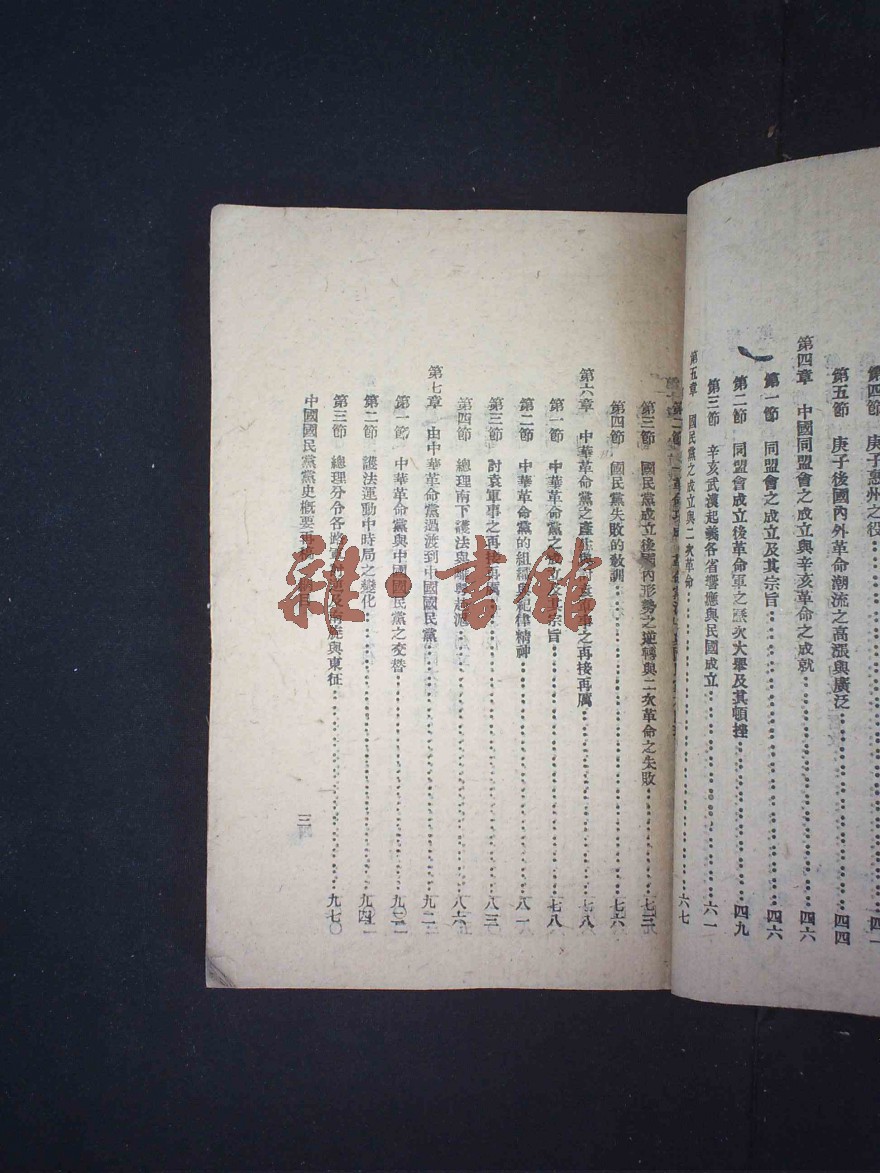 第四節　庚子惠州之役……四一
第五節　庚子後國內外革命潮流之高漲與廣泛……四四
第四章　中國同盟會之成立與辛亥革命之成就……四六
第一節　同盟會之成立及其宗旨……四六
第二節　同盟會成立後革命軍之歷次大舉及其頓挫……四九
第三節　辛亥武漢起義各省響應與民國成立……六一
第五章　國民黨之成立與二次革命……六七
第二節
第三節　國民黨成立後國內形勢之逆轉與二次革命之失敗……七三
第四節　國民黨失敗的教訓……七六
第六章　中華革命黨之產生與討袁軍事之再接再厲……七八
第一節　中華革命黨之成立及其宗旨……七八
第二節　中華革命黨的組織與紀律精神……八一
第三節　討袁軍事之再接再厲……八三
第四節　總理南下護法與
……八六
第七章　由中華革命黨過渡到中國國民黨……九二
第一節　中華革命黨與中國國民黨之交替……九二
第二節　護法運動中時局之變化……九四
第三節　總理分令各路軍
及南旋與東征……九七
中國國民黨黨史概要再稿　目
三
雜·書館